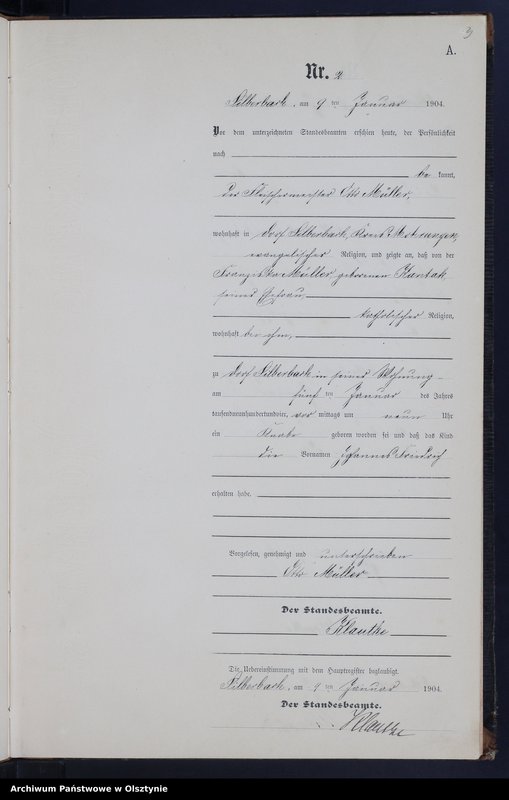 3
A.
Nr. 2
Silberbach, am 9 ten Januar 1904.
Vor dem unterzeichneten Standesbeamten erschien heute, der Persönlichkeit
nach
be kannt,
der Fleischermeister Otto Müller,
wohnhaft in Dorf Silberbach, Kreis Mohrungen,
evangelischer Religion, und zeigte an, daß von der
Franziska Müller geborenen Kantak
seiner Ehefrau,
katholischer Religion,
wohnhaft bei ihm,
zu Dorf Silberbach in seiner Wohnung
am fünf ten Januar des Jahres
tausendneunhundertundvier, vor mittags um neun Uhr
ein Knabe geboren worden sei und daß das Kind
die Vornamen Johannes Friedrich
erhalten habe.
Vorgelesen, genehmigt und unterschrieben
Otto Müller
Der Standesbeamte.
Klautke
Die Uebereinstimmung mit dem Hauptregister beglaubigt.
Silberbach, am 9 ten Januar 1904.
Der Standesbeamte.
Klautke
Archiwum Państwowe w Olsztynie